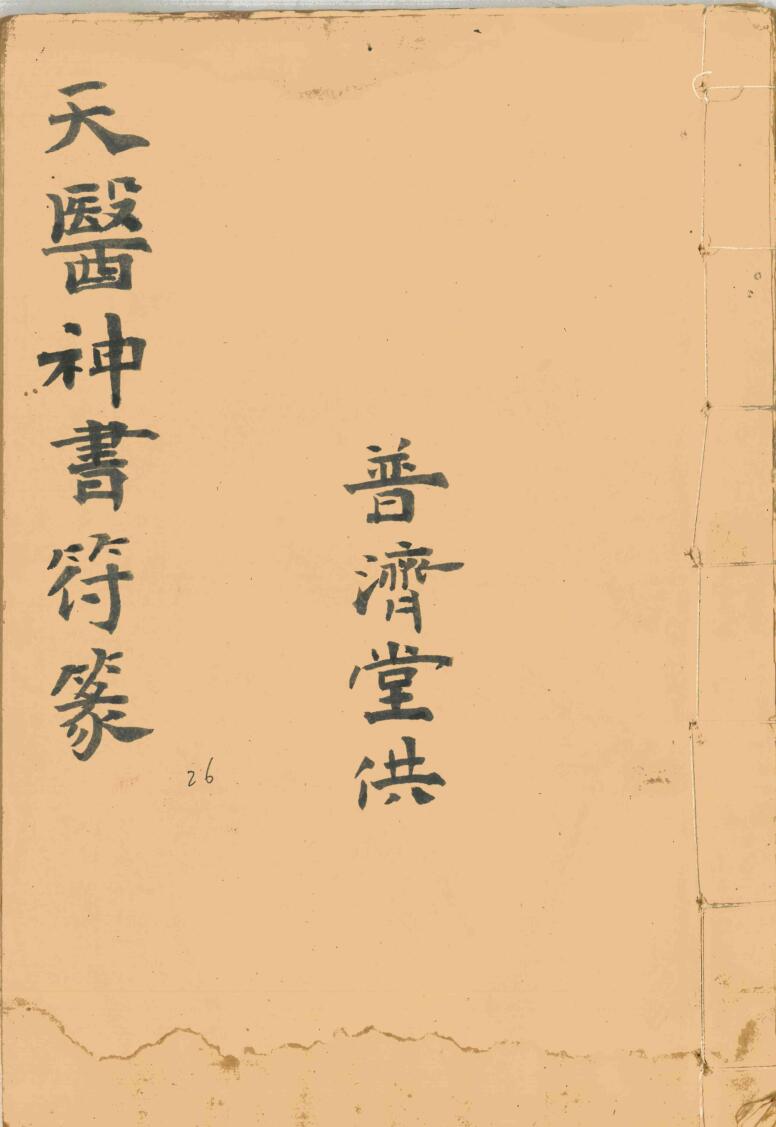 普濟堂供
天醫神書符篆
26